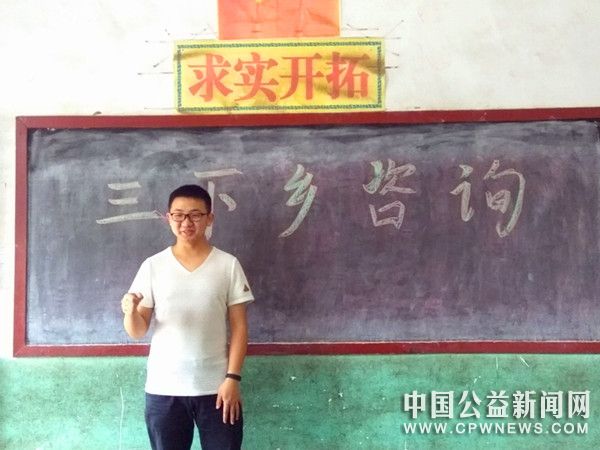 求实开拓
三下乡咨询
中国公益新闻网
WWW.CPWNEWS.COM